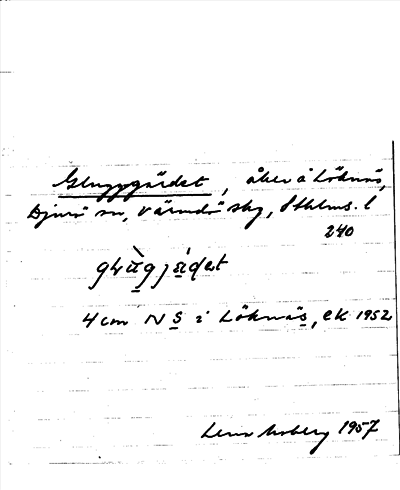 Gluggärdet, åker å Löknäs,
Djurö sn, Värmdö skg, Sthlms. l
240
4 cm N S i Löknäs, ek 1952
Moberg 1957